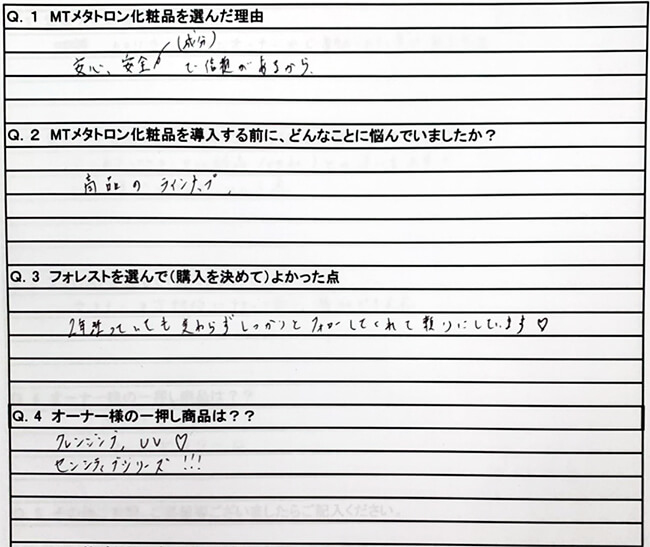 Q. 1 MTメタトロン化粧品を選んだ理由
(成分)
安心、安全で信頼があるから.
Q. 2 MTメタトロン化粧品を導入する前に、どんなことに悩んでいましたか?
商品のラインナップ.
Q. 3 フォレストを選んで(購入を決めて)よかった点
経っていても変わらずしっかりとフォローしてくれて頼りにしています♡
Q. 4 オーナー様の一押し商品は??
クレンジング, UV ♡
センシティブシリーズ !!!